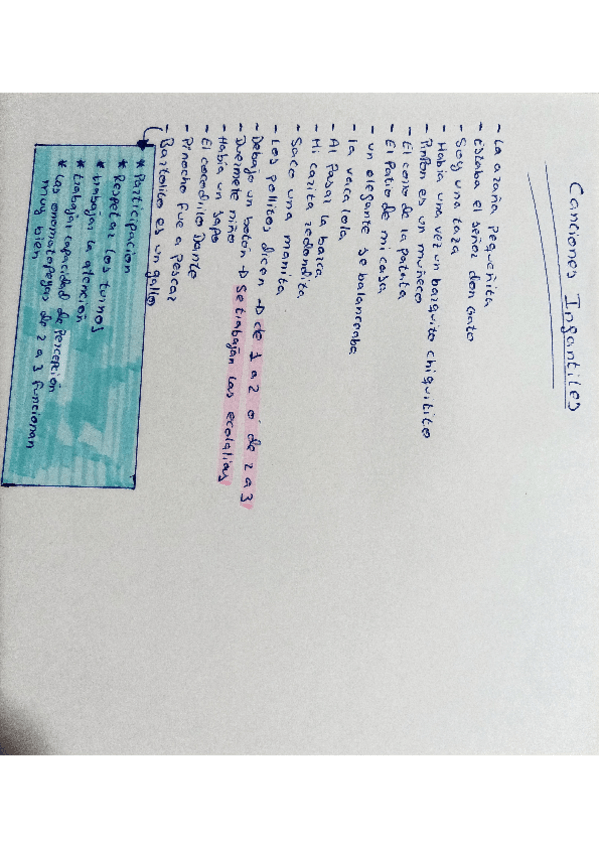 Canciones Infantiles
- La araña pequeñita
- Estaba el señor don Gato
- Soy una taza
- Había una vez un barquito chiquitito
- Pinpón es un muñeco
- El corro de la patata
- El patio de mi casa
- un elegante se balanceaba
- la vaca lola
- Al pasar la barca
- Mi carita redondita
- Saco una manita
- Los pollitos dicen → de 1 a 2 ó de 2 a 3
- Debajo un botón → Se trabajan las ecolalias
- Duermete niño
- Había un sapo
- El cocodrilo Dante
- Pinocho fue a pescar
- Bartolito es un gallo
* Participación
* Respetar los turnos
* trabajar la atención
* trabajar capacidad de percepción
* Las onomatopeyas de 2 a 3 funcionan
muy bien